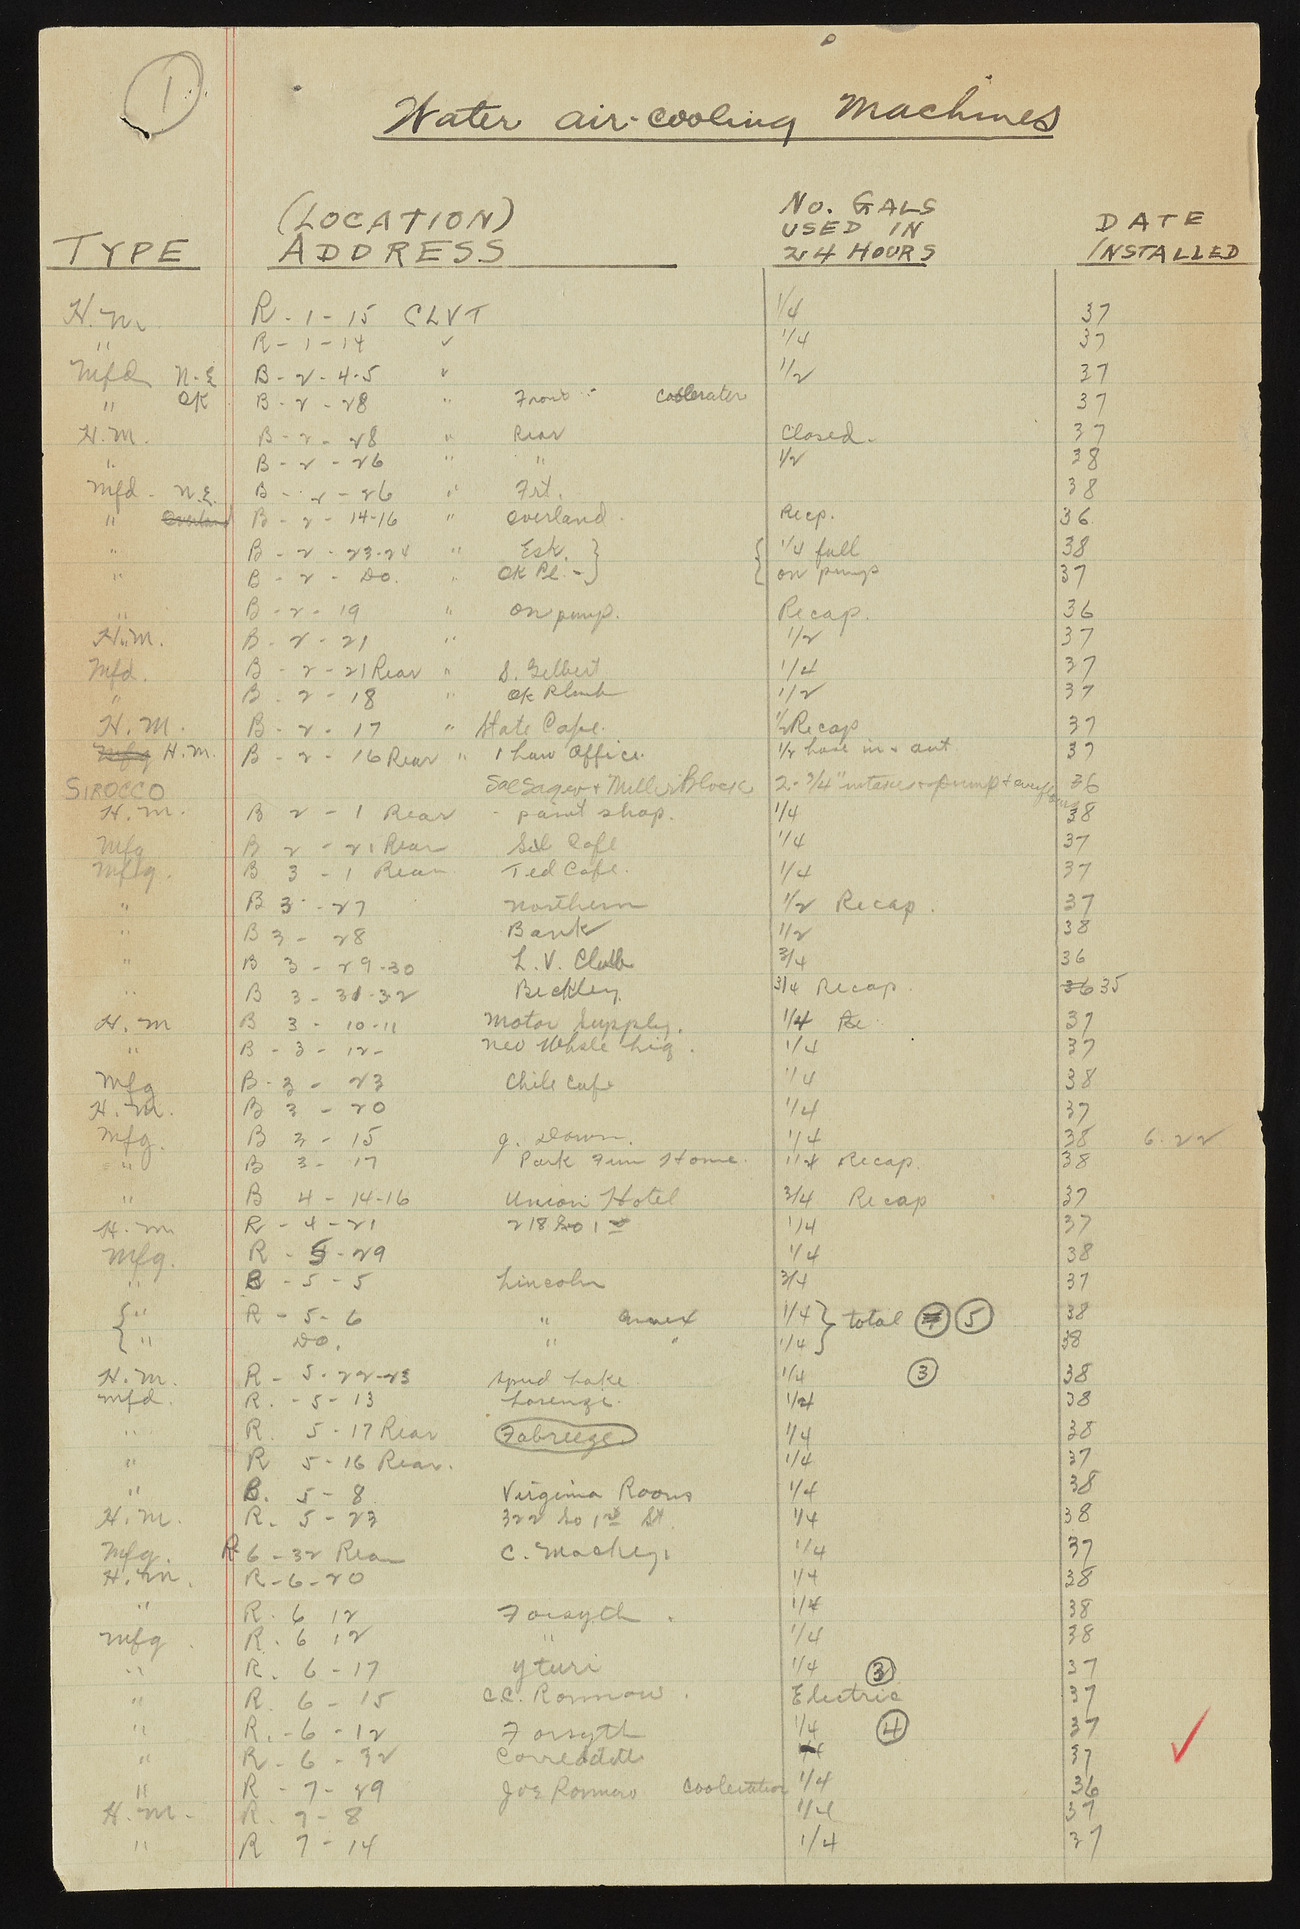 1
Water air-cooling Machines
TYPE (LOCATION) ADDRESS NO. GALS USED IN 24 HOURS DATE INSTALLED
H.M. R-1-15 CLVT 1/4 37
" R-1-14 ✓ 1/4 37
Mfd N.E B-2-4-5 ✓ 1/2 37
" OK B-2-28 " Front - Coolerator 37
H.M. B-2-28 " Rear Closed. 37
" B-2-26 " " 1/2 38
Mfd - N.E. B-2-26 " Frt. 38
" Overland B-2-14-16 " Overland. Recp. 36
" B-2-23-24 " Esk. } { 1/4 full 38
" B-2-Do. " OK Pl. - } { on pump 37
" B-2-19 " on pump. Recap. 36
H.M. B-2-21 " 1/2 37
Mfd. B-2-21 Rear " S. Gilbert 1/4 37
" B-2-18 " OK Plumb 1/2 37
H.M. B-2-17 " State Cafe. 1/2 Recap 37
Mfg H.M. B-2-16 Rear " 1 Law Office. 1/2 hose in & out 37
SIROCCO Sal Sagev + Miller Block 2-3/4" intakes + pump + 36
H.M. B 2-1 Rear - paint shop. 1/4 38
Mfg B 2-21 Rear Sil Cafe 1/4 37
Mfg. B 3-1 Rear Ted Cafe. 1/4 37
" B 3-27 Northern 1/2 Recap. 37
" B 3-28 Bank 1/2 38
" B 3-29-30 L.V. Club 3/4 36
" B 3-31-32 Beckley 3/4 Recap. 36 35
H.M B 3-10-11 Motor Supply. 1/4 Re 37
" B-3-12- Nev Whsle Liq. 1/4 37
Mfg B-3-23 Chile Cafe 1/4 38
H.M. B 3-20 1/4 37
Mfg. B 3-15 J. Down. 1/4 38 6-22
" B 3-17 Park Fun Home. 1/4 Recap. 38
" B 4-14-16 Union Hotel 3/4 Recap 37
H.M R-4-21 218 So 1st 1/4 37
Mfg. R-5-29 1/4 38
" B-5-5 Lincoln 3/4 37
{ " R-5-6 " Annex 1/4 } total 4 5 38
{ " Do. " " 1/4 } 38
H.M. R-5-22-23 Spud Lake 1/4 3 38
Mfd. R.-5-13 Lorenzi. 1/4 38
" R. 5-17 Rear Fabreeze 1/4 38
" R 5-16 Rear. 1/4 37
" B. 5-8 Virginia Rooms 1/4 38
H.M. R. 5-23 322 So 1st St. 1/4 38
Mfg. R 6-32 Rear C. Mackey. 1/4 37
H.M. R-6-20 1/4 38
" R. 6 12 Forsyth. 1/4 38
Mfg. R. 6 12 " 1/4 38
" R. 6-17 Yturi 1/4 3 37
" R. 6-15 C.C. Ronnow. Electric 37
" R.-6-12 Forsyth 1/4 4 37
" R-6-32 1/4 37 ✓
" R-7-29 Joe Ronnow Cooleration 1/4 36
H.M.- R. 7-8 1/4 37
" R 7-14 1/4 37